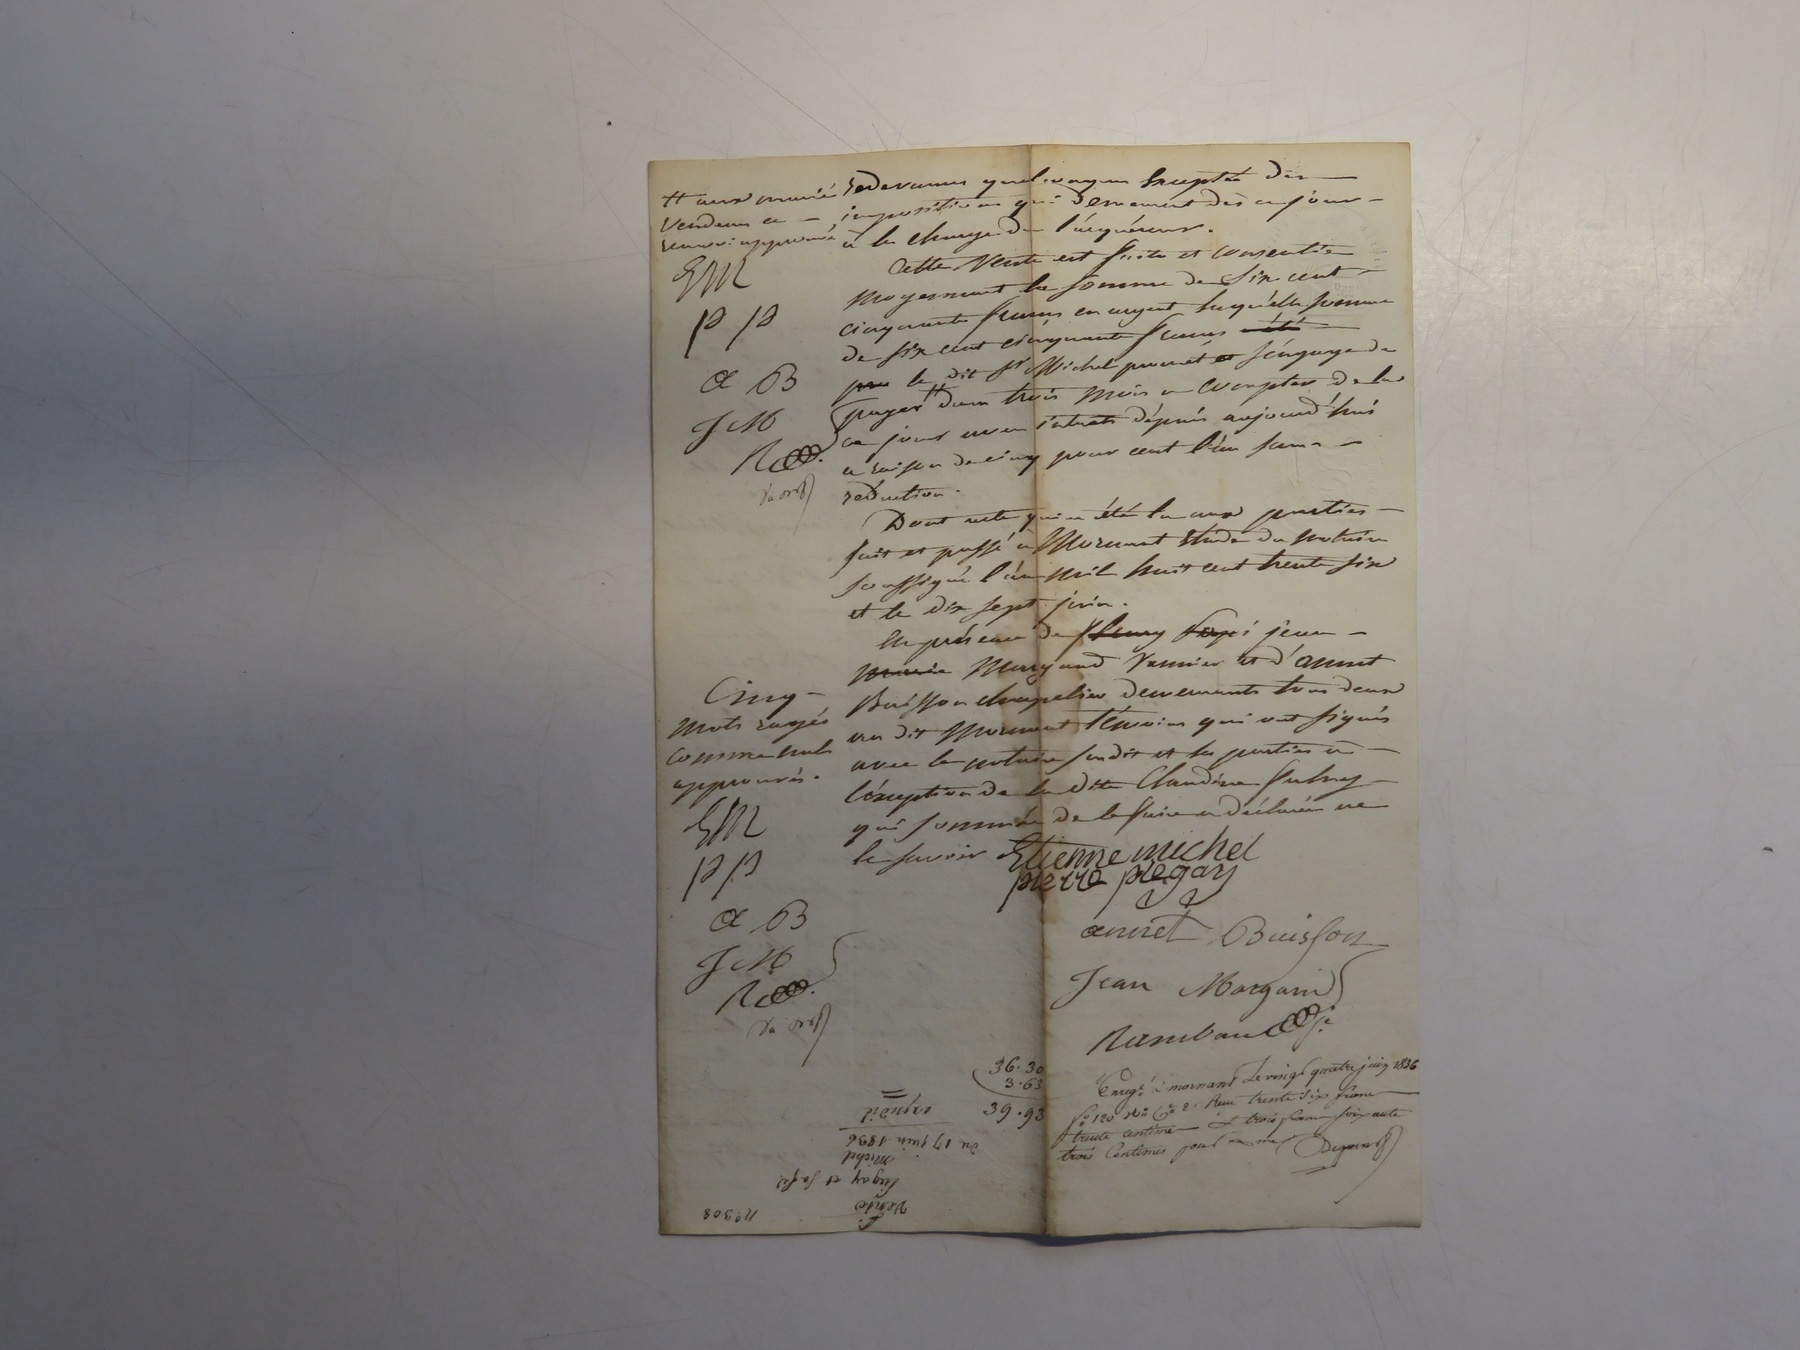 redevances quelconques Excepté des
impositions qui demeurent dès ce jour
à la charge de l'acquéreur.
Cette Vente est faite et consentie
moyennant la somme de Six cent
cinquante francs en argent laquelle somme
de six cent cinquante francs a été
le dit Sr Michel promet et s'engage de
payer # dans trois mois a compter de la
ce jour avec intérets dépuis aujourd'hui
a raison de cinq pour cent l'an sans
réduction.
# aux mariés
Vendeurs ce
renvoi approuvé
EM
PP
a B
J M
R
Dont acte qui a été lu aux parties
fait et passé a Mornant étude du notaire
soussigné l'an mil huit cent trente six
et le dix sept juin.
En présence de fleury jean
Margand Vannier et d'annet
Buisson chapelier demeurants tous deux
au dit Mornant témoins qui ont signés
avec le notaire susdit et les parties a
l'éxception de la dite Claudine
qui sommée de le faire a déclaré ne
le savoir
Cinq
mots rayés
comme nuls
approuvés.
EM
PP
a B
J M
R
Etienne michel
pierre pregay
annet Buisson
Jean Margand
Rambaud
36.30
3.63
39.93
Enregé à mornant Le vingt quatre juin 1836
fo 120 Vo Ce 2. Reçu trente six francs
trente centimes et trois francs soixante
trois Centimes pour
No 308
Vente
et sa fe
Michel
du 17 juin 1836
expédié